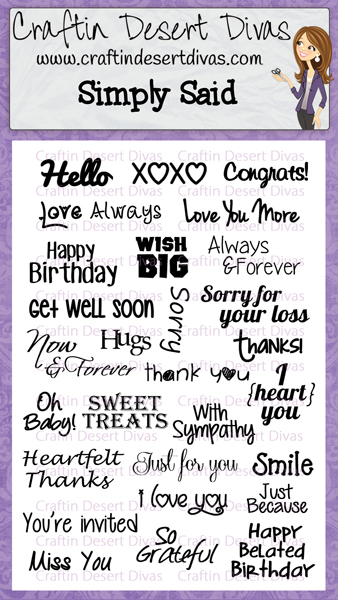 Craftin Desert Divas
www.craftindesertdivas.com
Simply Said
Craftin Desert Divas
Hello
XOXO
Congrats!
Love Always
Love You More
Happy
Birthday
WISH
BIG
Always
&Forever
Get well soon
Sorry
Sorry for
your loss
Now
& Forever
Hugs
THANKS!
thank you
I
{heart}
you
Oh
Baby!
SWEET
TREATS
With
Sympathy
Heartfelt
Thanks
Just for you
Smile
i love you
Just
Because
You're invited
So
Grateful
Happy
Belated
Birthday
Miss You
Craftin Desert Divas